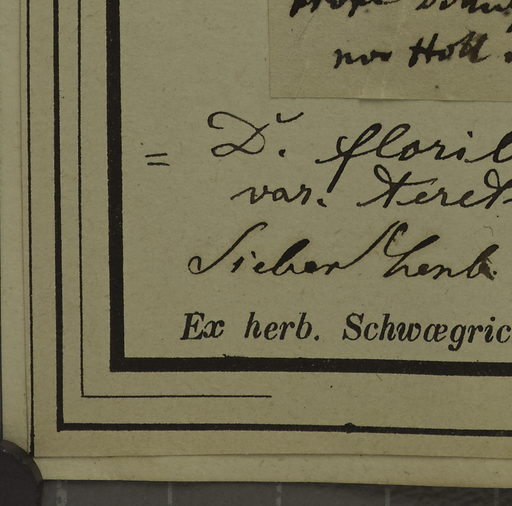 nov Holl
= D. floril
var. teret
Sieber herb.
Ex herb. Schwægric